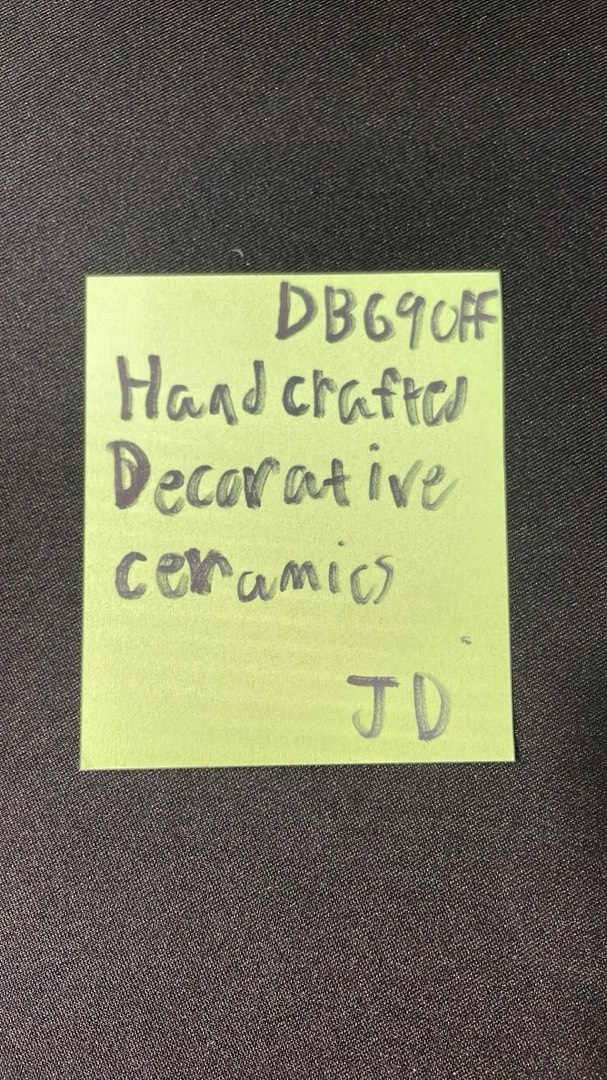 DB690ff
Handcrafted
Decorative
ceramics
JD